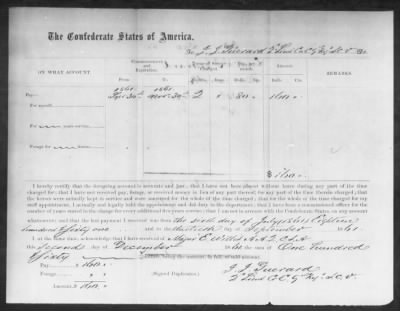 The Confederate States of America,
To J. J. Guerard 2d Lieut Co. G Regt. S. C. V. Dr.
ON WHAT ACCOUNT. Commencement and Expiration. Term of Service Charged. Pay per month. Amount. REMARKS.
From To Months. Days. Dolls. Cts. Dolls. Cts.
1861 1861
Pay— Sept 30th Nov 30th 2 " 80 160
For myself
For years service
Forage for horses
$ 160
I hereby certify that the foregoing account is accurate and just; that I have not been absent without leave during any part of the time
charged for; that I have not received pay, forage, or received money in lieu of any part thereof, for any part of the time therein charged; that
the horses were actually kept in service and were mustered for the whole of the time charged; that for the whole of the time charged for my
staff appointment, I actually and legally held the appointment and did duty in the department; that I have been a commissioned officer for the
number of years stated in the charge for every additional five years service; that I am not in arrears with the Confederate States, on any account
whatsoever; and that the last payment I received was from
hundred & sixty one and the thirtieth day of September 1861
At the same time, I acknowledge that I have received of Major E. Willis A. A. Q. C. S. A.
this second day of December 1861 the sum of One hundred
& sixty dollars, being the amount, in full, of said account.
Pay— 160
Forage—
Amount— 160
(Signed Duplicates.)
J. J. Guerard
2d Lieut Co. G Regt. S. C. V.